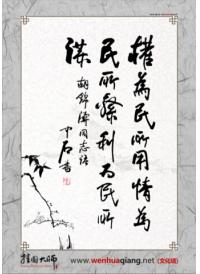 權為民所用情為
民所繫利為民所
謀
胡錦濤同志語
中石書
挂图大师
www.wenhuaqiang.net (文化墙)